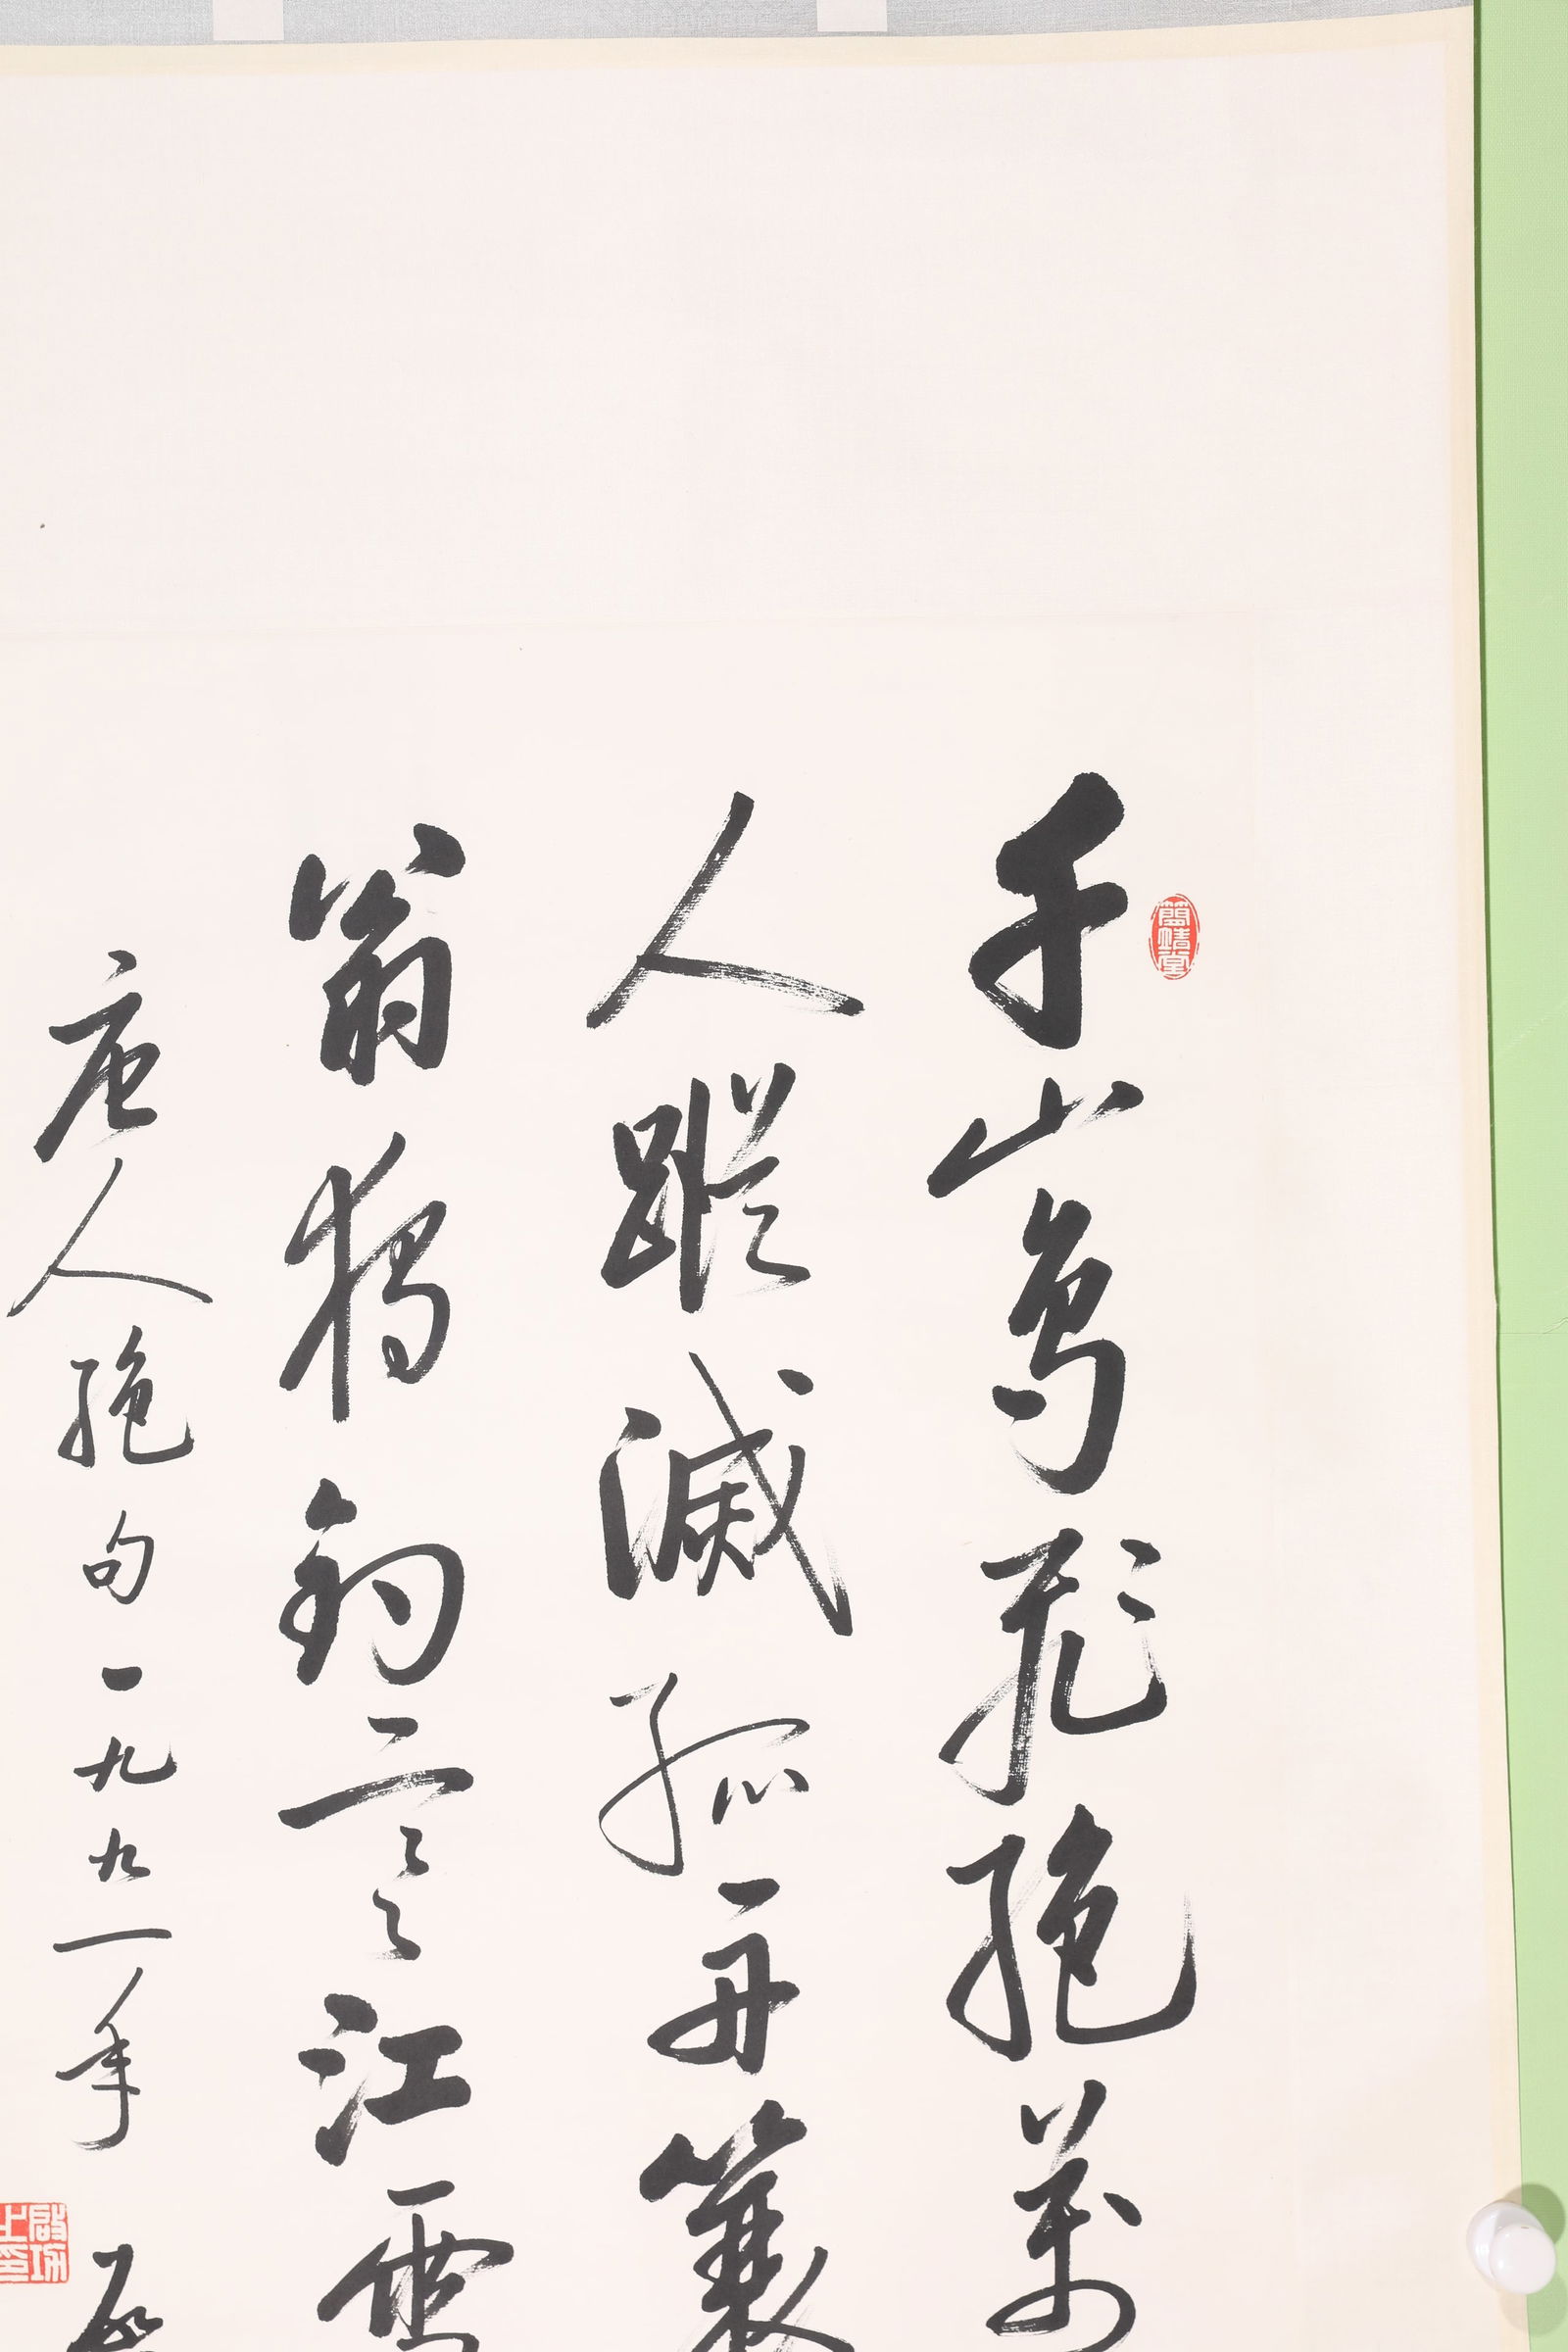 簡靖堂
千山鳥飛絕萬
人蹤滅孤舟簑
翁獨釣寒江雪
唐人絕句一九九一年 啟
啟功之印